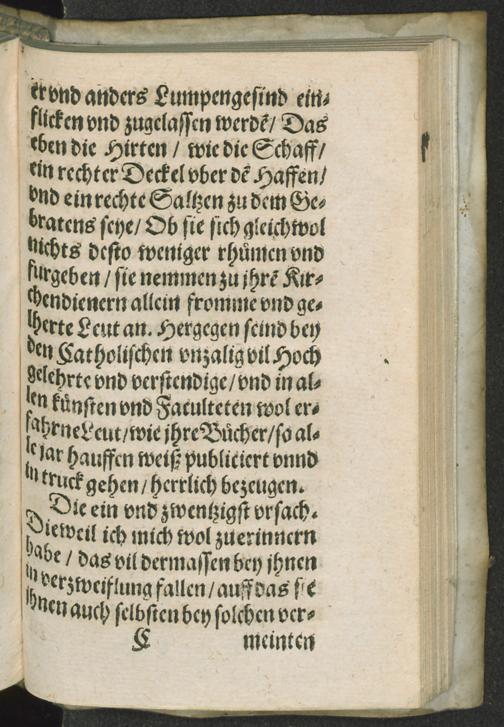 er vnd anders Lumpengesind ein⸗
flicken vnd zugelassen werdẽ/ Das
eben die Hirten / wie die Schaff/
ein rechter Deckel vber dẽ Haffen/
vnd ein rechte Saltzen zu dem Ge⸗
bratens seye/ Ob sie sich gleichwol
nichts desto weniger rhůmen vnd
furgeben / sie nemmen zu jhrẽ Kir⸗
chendienern allein fromme vnd ge⸗
lherte Leut an. Hergegen seind bey
den Catholischen vnzalig vil Hoch
gelehrte vnd verstendige/ vnd in al⸗
len kůnsten vnd Faculteten wol er⸗
fahrne Leut/ wie jhre Bücher/ so al⸗
le jar hauffen weiß publiciert vnnd
in truck gehen/ herrlich bezeugen.
Die ein vnd zwentzigst vrsach.
Dieweil ich mich wol zuerinnern
habe / das vil dermassen bey jhnen
in verzweiflung fallen/ auff das sie
jhnen auch selbsten bey solchen ver⸗
C meinten